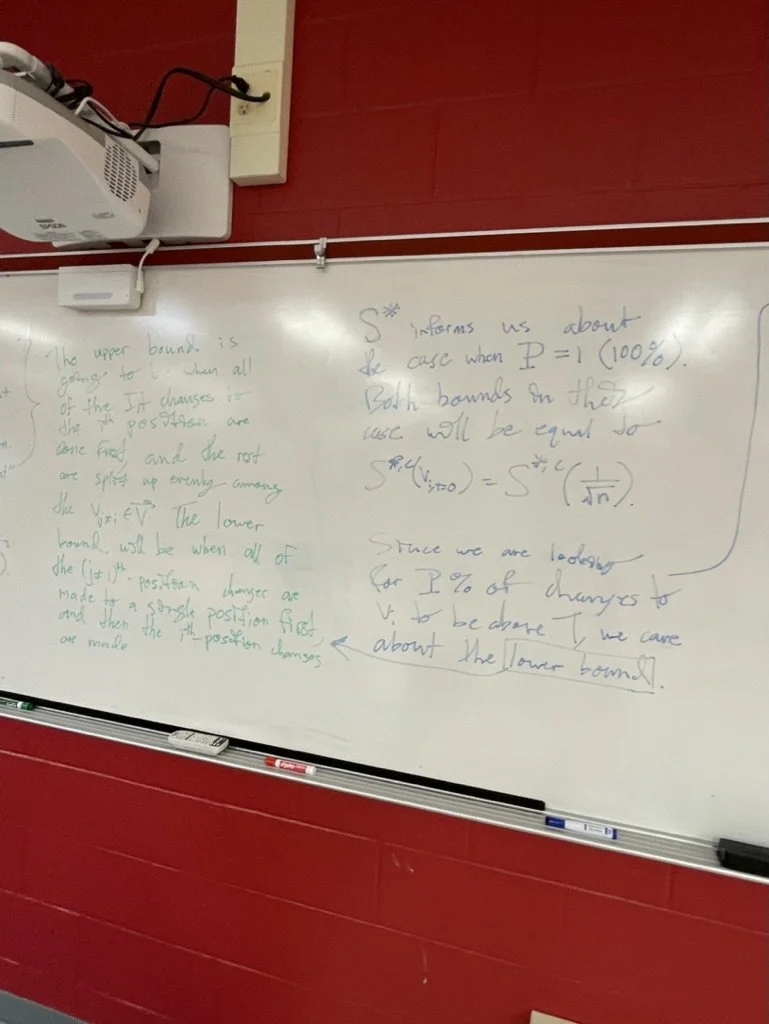 EPSON
The upper bound is
going to when all
of the changes to
the ith position are
done first, and the rest
are split up evenly among
the V_j≠i ∈ V⃗. The lower
bound will be when all of
the (j≠i)th-position changes are
made to a single position first,
and then the ith-position changes
are made
S* informs us about
the case when P = 1 (100%).
Both bounds in this
case will be equal to
S*,c(V_i,t=0) = S*,c(1/√n).
Since we are looking
for P% of changes to
V_i to be above T, we care
about the lower bound.